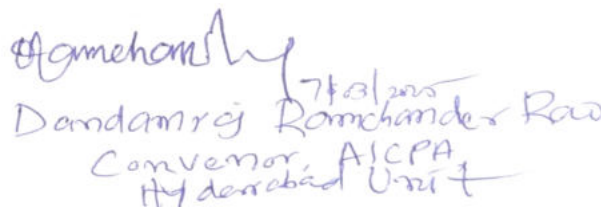 Ramchan
7/03/2025
Dandamraj Ramchander Rao
Convenor, AICPA,
Hyderabad Unit